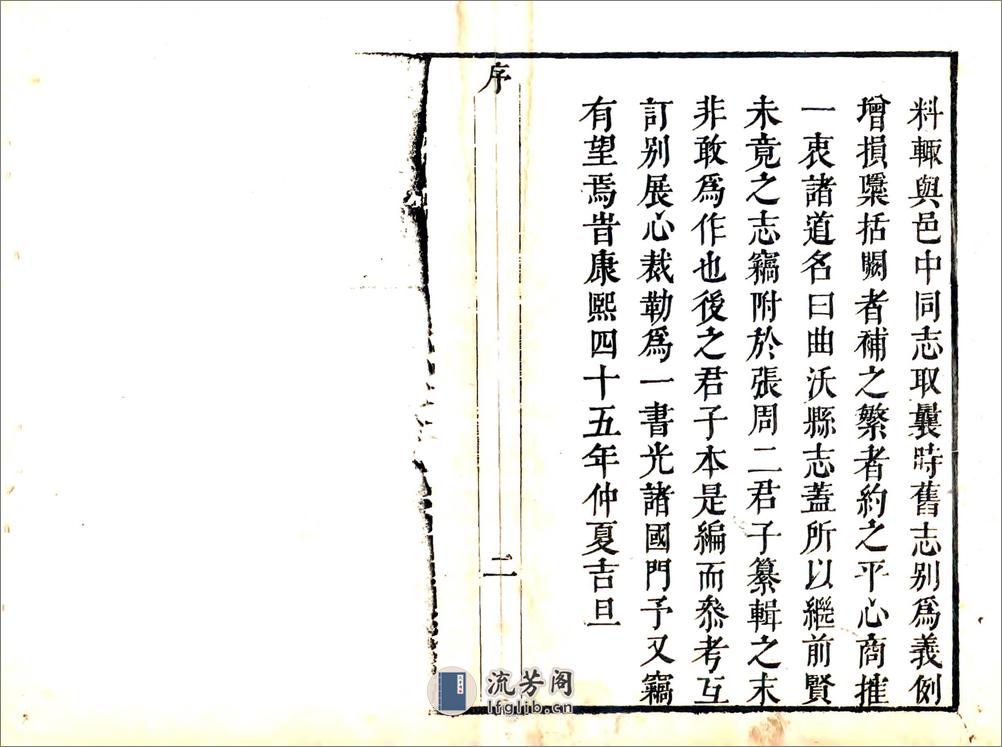 料輙與邑中同志取曩時舊志別爲義例
增損檃括闕者補之繁者約之平心商摧
一衷諸道名曰曲沃縣志蓋所以繼前賢
未竟之志竊附於張周二君子纂輯之末
非敢爲作也後之君子本是編而叅考互
訂别展心裁勒爲一書光諸國門予又竊
有望焉旹康熙四十五年仲夏吉旦
序
二
流芳阁
lfglib.cn